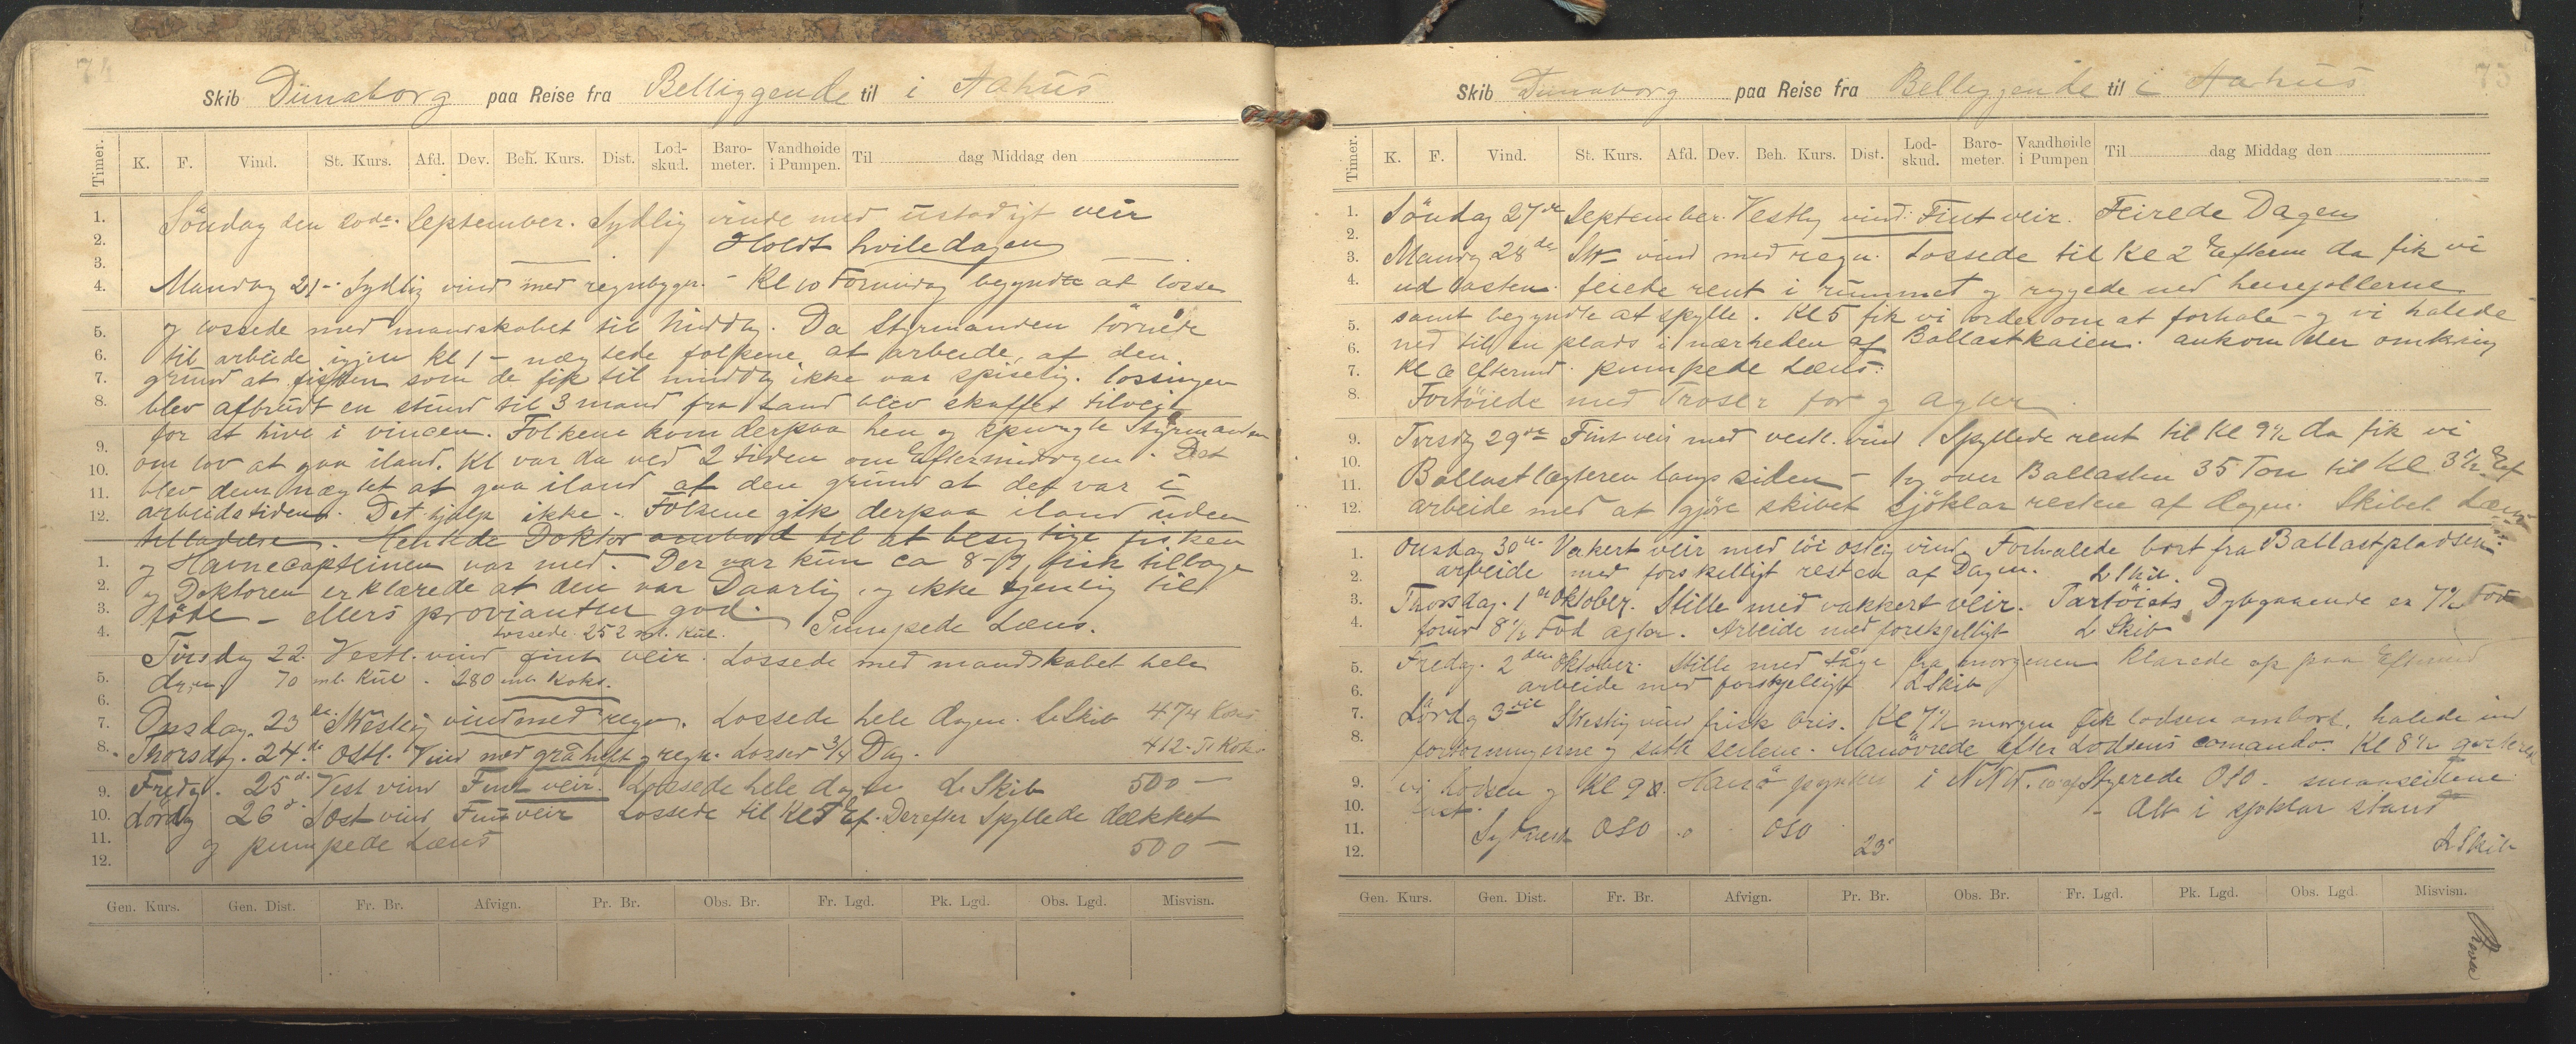 74
Skib Dünaborg paa Reise fra Belliggende til i Aahus
Timer. K. F. Vind. St. Kurs. Afd. Dev. Beh. Kurs. Dist. Lod-skud. Baro-meter. Vandhøide i Pumpen. Til dag Middag den
1. 2. 3. 4. 5. 6. 7. 8. 9. 10. 11. 12.
1. 2. 3. 4. 5. 6. 7. 8. 9. 10. 11. 12.
Söndag den 20de September. Sydlig vinde med ustadigt veir
Holdt hviledagen
Mandag 21 - Sydlig vind med regnbyger. - Kl 10 Formidag begyndte at losse
og lossede med mandskabet til Middag. Da Styrmanden törnede
til arbeide igjen kl 1 - nægtede folkene at arbeide, af den
grund at fisken som de fik til middag ikke var spiselig. lossingen
blev afbrudt en stund til 3 mand fra Land blev skaffet tilveie
for at hive i vincen. Folkene kom derpaa hen og spurgte Styrmanden
om lov at gaa iland. Kl var da ved 2 tiden om Eftermidagen. Det
blev dem nægtet at gaa iland af den grund at det var i
arbeidstiden. Det hjalp ikke - Folkene gik derpaa iland uden
tilladelse. Hentede Doktor ombord til at besigtige fisken
og Havnecapteinen var med. Der var kun ca 8-9 fisk tilbage
og Doktoren erklærede at den var Daarlig og ikke tjenlig til
föde - ellers provianten god. Pumpede Læns.
Lossede 252 ml. Kul.
Tirsdag 22. Vestl. vind fint veir. Lossede med mandskabet hele
dagen 70 ml. Kul - 280 ml. Koks.
Onsdag 23de SWestlig vind med regn. Lossede hele dagen. L Skib 474 Koks
Thorsdag. 24.de Ostl. Vind med gråluft og regn. Losset 3/4 Dag. 412 Koks
Fredag. 25d. Vest vind Fint veir. Lossede hele dagen L Skib 500 —
Lördag 26d Sost vind Fint veir Lossede til Kl 5 Ef. Derefter Spyllede dækket
og pumpede Læns 500 —
Gen. Kurs. Gen. Dist. Fr. Br. Afvign. Pr. Br. Obs. Br. Fr. Lgd. Pk. Lgd. Obs. Lgd. Misvisn.
75
Skib Dünaborg paa Reise fra Belliggende til i Aahus
Timer. K. F. Vind. St. Kurs. Afd. Dev. Beh. Kurs. Dist. Lod-skud. Baro-meter. Vandhøide i Pumpen Til dag Middag den
1. 2. 3. 4. 5. 6. 7. 8. 9. 10. 11. 12.
1. 2. 3. 4. 5. 6. 7. 8. 9. 10. 11. 12.
Söndag 27de September. Vestlig vind. Fint veir. Feirede Dagen
Mandag 28de SW- vind med regn. Lossede til Kl 2 Efterm da fik vi
ud lasten. feiede rent i rummet og ryggede ned heisejollerne
samt begyndte at spylle. Kl 5 fik vi order om at forhale - og vi halede
ned til en plads i nærheden af Ballastkaien. ankom der omkring
Kl 6 Eftermd. pumpede Læns.
Fortöiede med Troser for og agter.
Tirsdag 29de Fint veir med vestl. vind Spyllede rent til Kl 9½ da fik vi
Ballastlægteren langs siden - og over Ballasten 35 Ton til Kl 3½ Ef
arbeide med at gjöre skibet sjöklar resten af dagen. Skibet Læns
Onsdag 30te Vakert veir med löi ostlig vind. Forhalede bort fra Ballastpladsen.
arbeide med forskelligt resten af Dagen. L Skib.
Thorsdag. 1ste Oktober. Stille med vakkert veir. Fartöiets Dybgaaende er 7½ Fod
forud 8½ Fod agter. Arbeide med forskjelligt L Skib
Fredag. 2den Oktober. Stille med tåge fra morgenen klarede op paa Eftermd
arbeide med forskjelligt L Skib
Lördag 3die SWestlig vind frisk bris. Kl 7½ morgen fik lodsen ombord. halede ind
fortöiningerne og satte seilene. Manövrede efter Lodsens comando. Kl 8½ kvitterede
vi Lodsen og Kl 9 Hanö i NNW. Styrede OSO. smaaseilene
fast. - Alt i sjöklar stand
Sydvest OSO OSO 23'
L Skib
Gen. Kurs. Gen. Dist. Fr. Br. Afvign. Pr. Br. Obs. Br. Fr. Lgd. Pk. Lgd. Obs. Lgd. Misvisn.